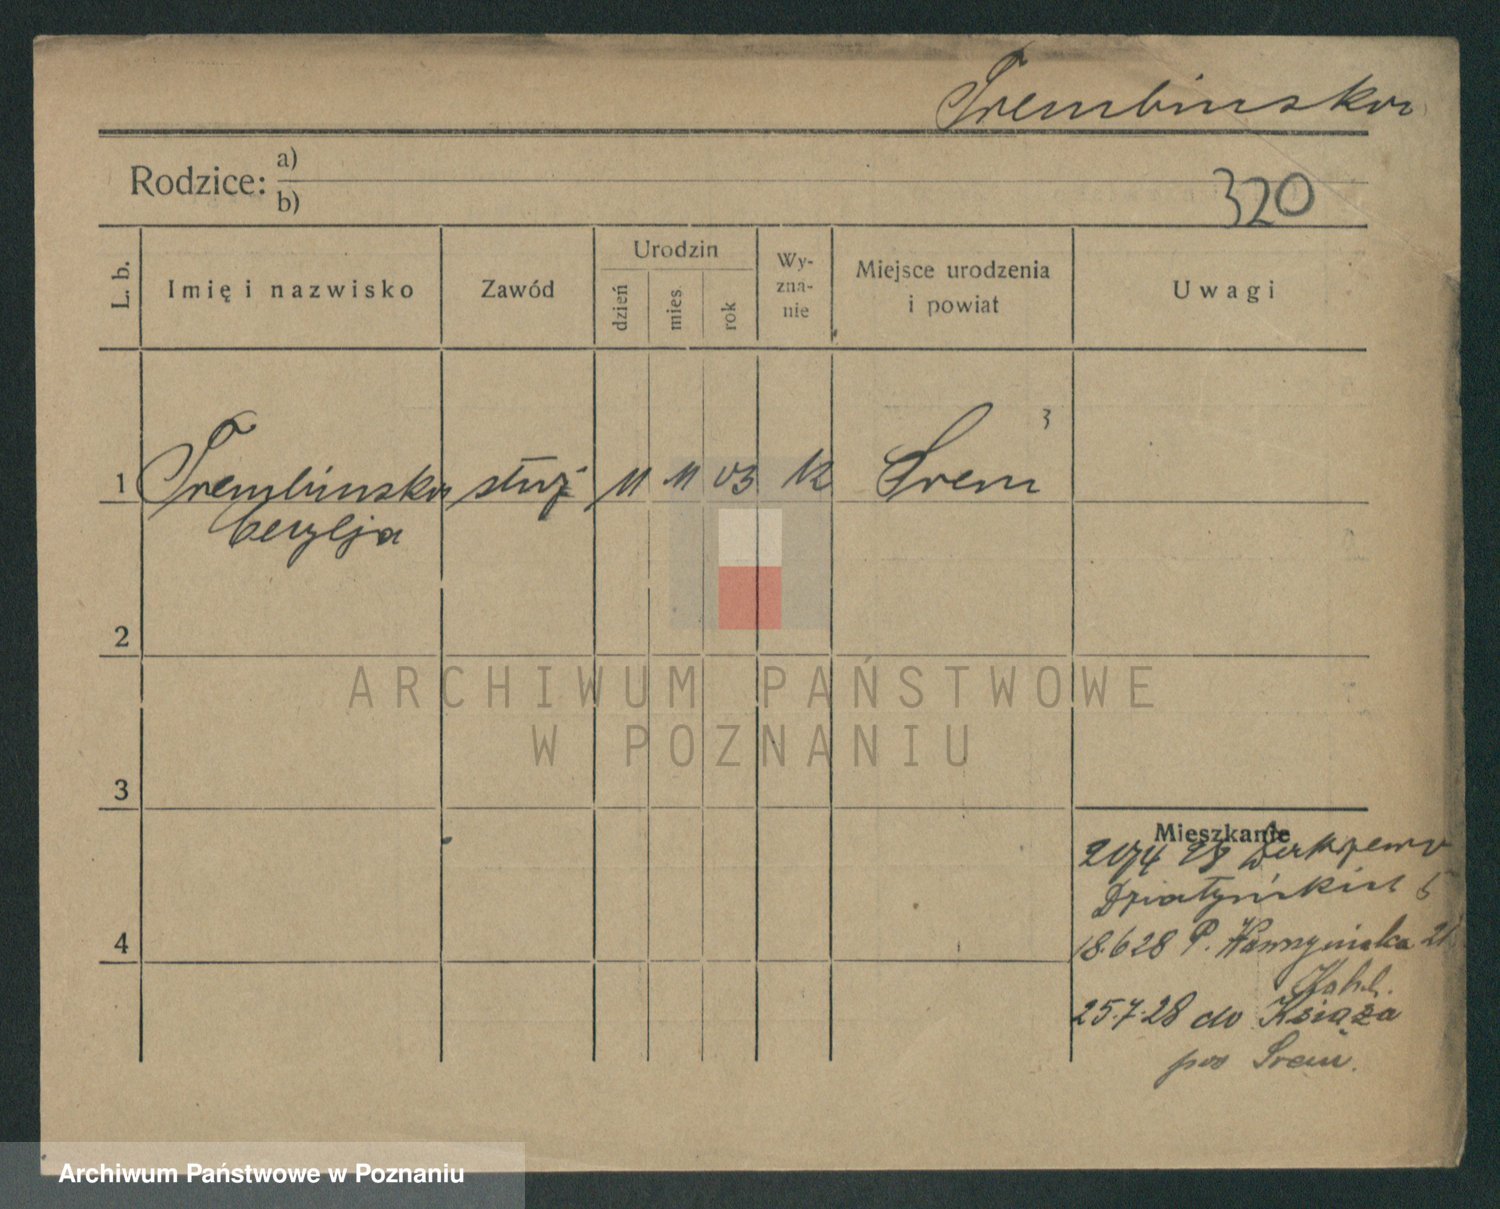 Trembinska
Rodzice: a)
b)
320
L. b.
Imię i nazwisko
Zawód
Urodzin
dzień
mies.
rok
Wy-
zna-
nie
Miejsce urodzenia
i powiat
Uwagi
3
1 Trembinska służ 11 11 03 K Śrem
Cecylja
2
ARCHIWUM PAŃSTWOWE
W POZNANIU
3
Mieszkanie
28
Działyńskich 5
4
18.6 28 P. 21
25.7.28 do Książa
pow Śrem.
Archiwum Państwowe w Poznaniu